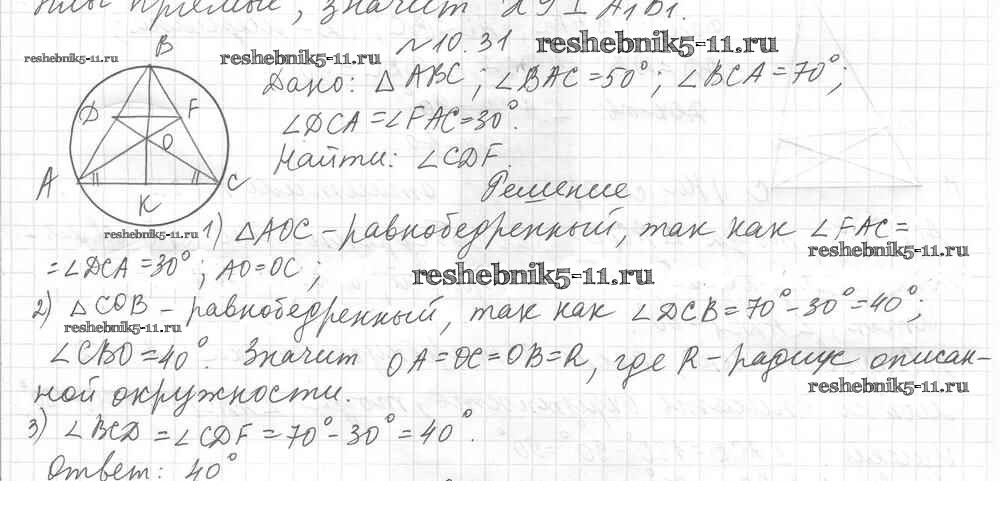 ... прямые, значит ... ⊥ A₁B₁.
reshebnik5-11.ru
reshebnik5-11.ru
№10.31
reshebnik5-11.ru
B
Дано: △ABC; ∠BAC = 50°; ∠BCA = 70°;
D
F
∠DCA = ∠FAC = 30°.
O
Найти: ∠CDF.
A
C
K
Решение
reshebnik5-11.ru
1) △AOC – равнобедренный, так как ∠FAC =
reshebnik5-11.ru
= ∠DCA = 30°; AO = OC;
reshebnik5-11.ru
2) △COB – равнобедренный, так как ∠DCB = 70° – 30° = 40°;
reshebnik5-11.ru
∠CBO = 40°. Значит OA = OC = OB = R, где R – радиус описан-
reshebnik5-11.ru
ной окружности.
3) ∠BCD = ∠CDF = 70° – 30° = 40°.
Ответ: 40°